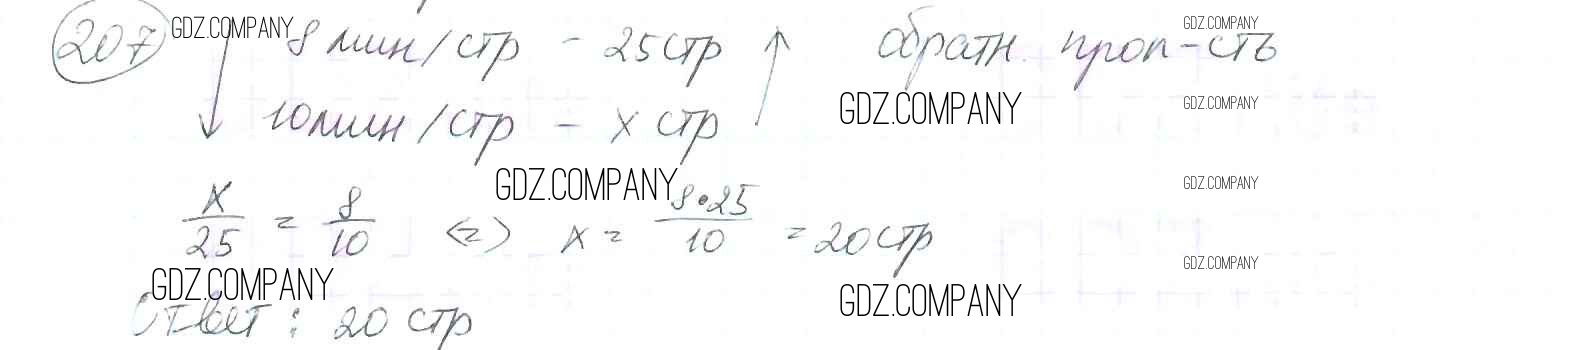 207 8 мин/стр - 25 стр обратн. проп-сть
10 мин/стр - x стр
x/25 = 8/10 <=> x = 8•25/10 = 20 стр
Ответ: 20 стр
GDZ.COMPANY
GDZ.COMPANY
GDZ.COMPANY
GDZ.COMPANY
GDZ.COMPANY
GDZ.COMPANY
GDZ.COMPANY
GDZ.COMPANY
GDZ.COMPANY